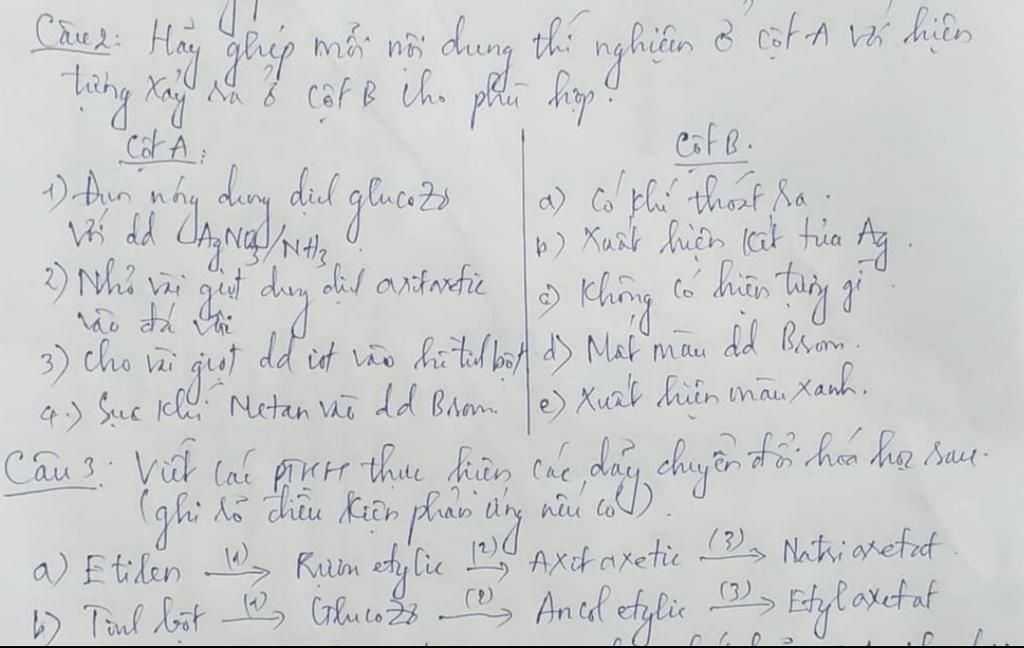 Câu 2: Hãy ghép mỗi nội dung thí nghiệm ở cột A với hiện
tượng xảy ra ở cột B cho phù hợp.
Cột A:
1) Đun nóng dung dịch glucozơ
với dd AgNO3/NH3.
2) Nhỏ vài giọt dung dịch axit axetic
vào đá vôi
3) Cho vài giọt dd iot vào hồ tinh bột
4.) Sục khí Metan vào dd Brom.
Cột B.
a) Có khí thoát ra.
b) Xuất hiện kết tủa Ag.
c) Không có hiện tượng gì
d) Mất màu dd Brom.
e) Xuất hiện màu xanh.
Câu 3: Viết các PTHH thực hiện các dãy chuyển đổi hoá học sau.
(ghi rõ điều kiện phản ứng nếu có).
a) Etilen (1)→ Rượu etylic (2)→ Axit axetic (3)→ Natri axetat.
b) Tinh bột (1)→ Glucozơ (2)→ Ancol etylic (3)→ Etyl axetat